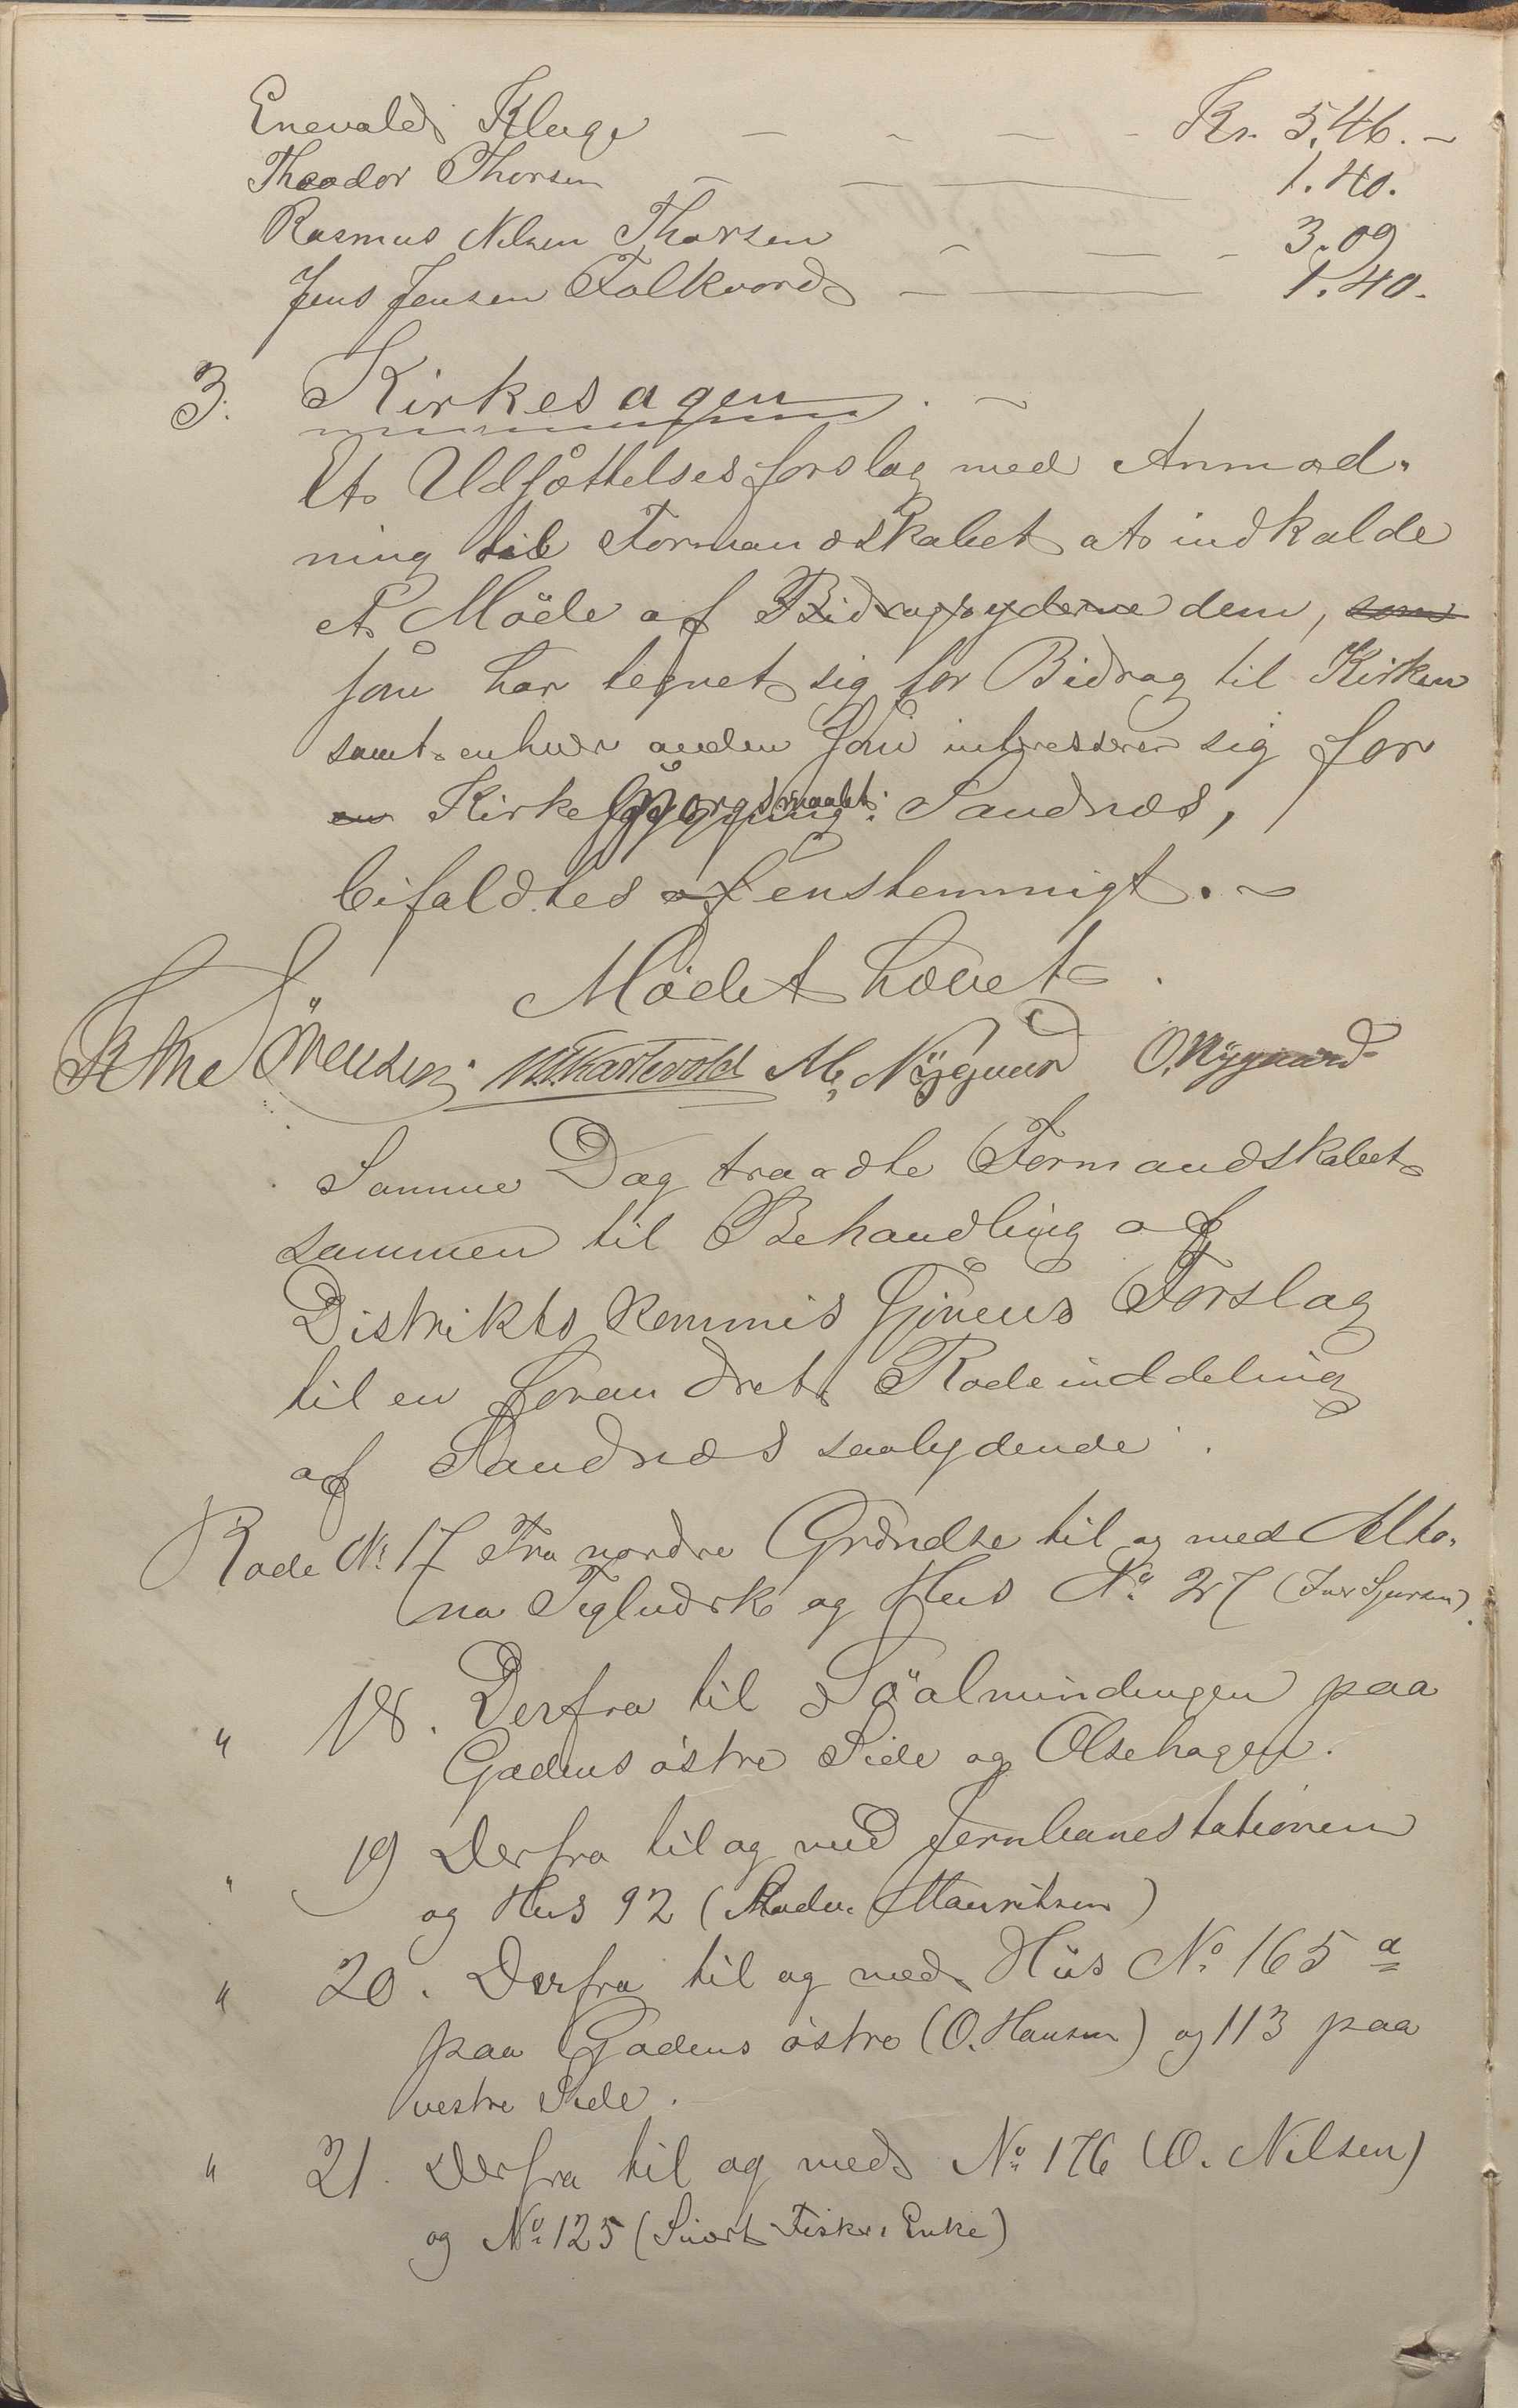 Enevald Kluge — — — — Kr. 5.46. —
Theodor Thorsen — — — 1.40.
Rasmus Nilsen Thorsen — — — 3.09
Jens Jensen Folkvord — — 1.40.
3. Kirkesagen. —
Et Udsættelsesforslag med Anmod-
ning til Formandskabet at indkalde
et Möde af Bidragsyderne dem, som
som har tegnet sig for Bidrag til Kirken
samt enhver anden som interesserer sig for
en Kirkespörgsmaalet i Sandnæs,
bifaldtes af enstemmigt. —
Mödet hævet.
Sörensen. M. Nygaard O. Nygaard
Samme Dag traadte Formandskabet
sammen til Behandling af
Distriktskommissjonens Forslag
til en forandret Rodeinddeling
af Sandnæs saalydende.
Rode No 17 Fra nordre Grændse til og med Alto-
na Teglværk og Hus No 27
" 18. Derfra til Söalmindingen paa
Gadens östre Side og Olsehagen.
" 19 Derfra til og med Jernbanestationen
og Hus 92 (Mauritsen)
" 20. Derfra til og med Hus No 165 a
paa Gadens östre (O. Hansen) og 113 paa
vestre Side.
" 21. Derfra til og med No 176 (O. Nilsen)
og No 125 (Sivert Fiskes Enke)